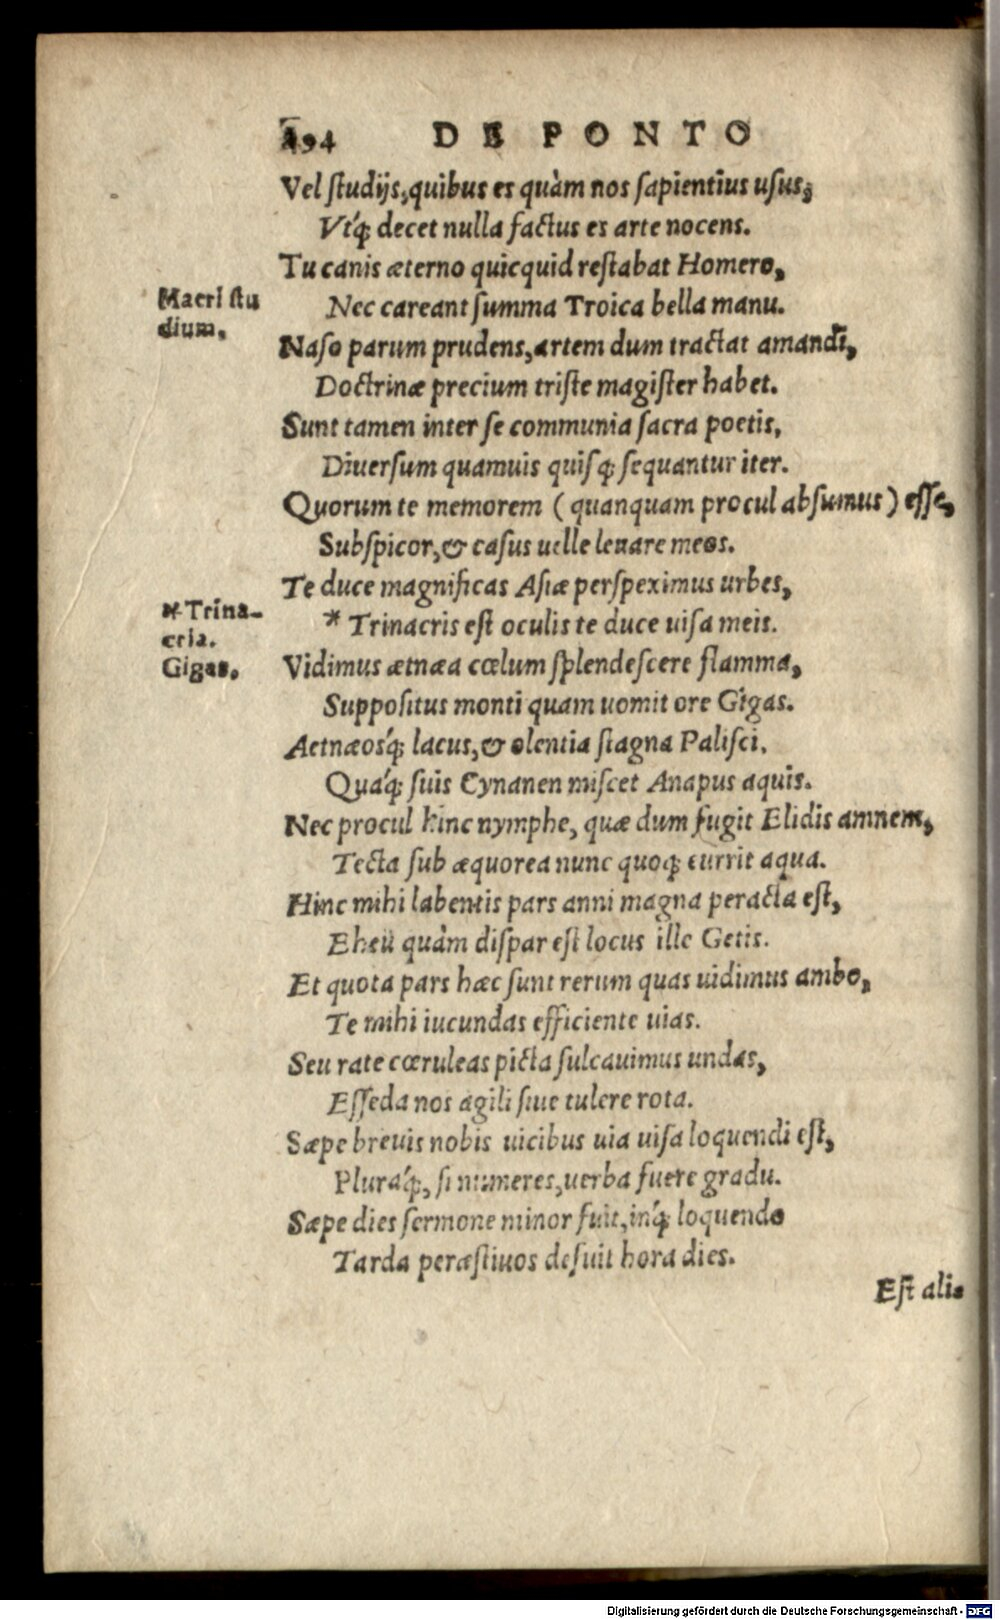 194 DE PONTO
Vel ſtudijs, quibus es quàm nos ſapientius uſus,
Vtq́; decet nulla factus es arte nocens.
Tu canis æterno quicquid reſtabat Homero,
Macri ſtu
Nec careant ſumma Troica bella manu.
dium.
Naſo parum prudens, artem dum tractat amandi,
Doctrinæ precium triſte magiſter habet.
Sunt tamen inter ſe communia ſacra poetis,
Diuerſum quamuis quiſq; ſequantur iter.
Quorum te memorem (quanquam procul abſumus) eſſe,
Subſpicor, & caſus uelle leuare meos.
Te duce magnificas Aſiæ perſpeximus urbes,
* Trina-
* Trinacris eſt oculis te duce uiſa meis.
cria.
Gigas.
Vidimus ætnæa cœlum ſplendeſcere flamma,
Suppoſitus monti quam uomit ore Gigas.
Aetnæosq́; lacus, & olentia ſtagna Paliſci,
Quáq́; ſuis Cynanen miſcet Anapus aquis.
Nec procul hinc nymphe, quæ dum fugit Elidis amnem,
Tecta ſub æquorea nunc quoq; currit aqua.
Hinc mihi labentis pars anni magna peracta eſt,
Eheu quàm diſpar eſt locus ille Getis.
Et quota pars hæc ſunt rerum quas uidimus ambo,
Te mihi iucundas efficiente uias.
Seu rate cœruleas picta ſulcauimus undas,
Eſſeda nos agili ſiue tulere rota.
Sæpe breuis nobis uicibus uia uiſa loquendi eſt,
Pluraq́;, ſi numeres, uerba fuere gradu.
Sæpe dies ſermone minor fuit, inq́; loquendo
Tarda peræſtiuos defuit hora dies.
Eſt ali-
Digitalisierung gefördert durch die Deutsche Forschungsgemeinschaft - DFG